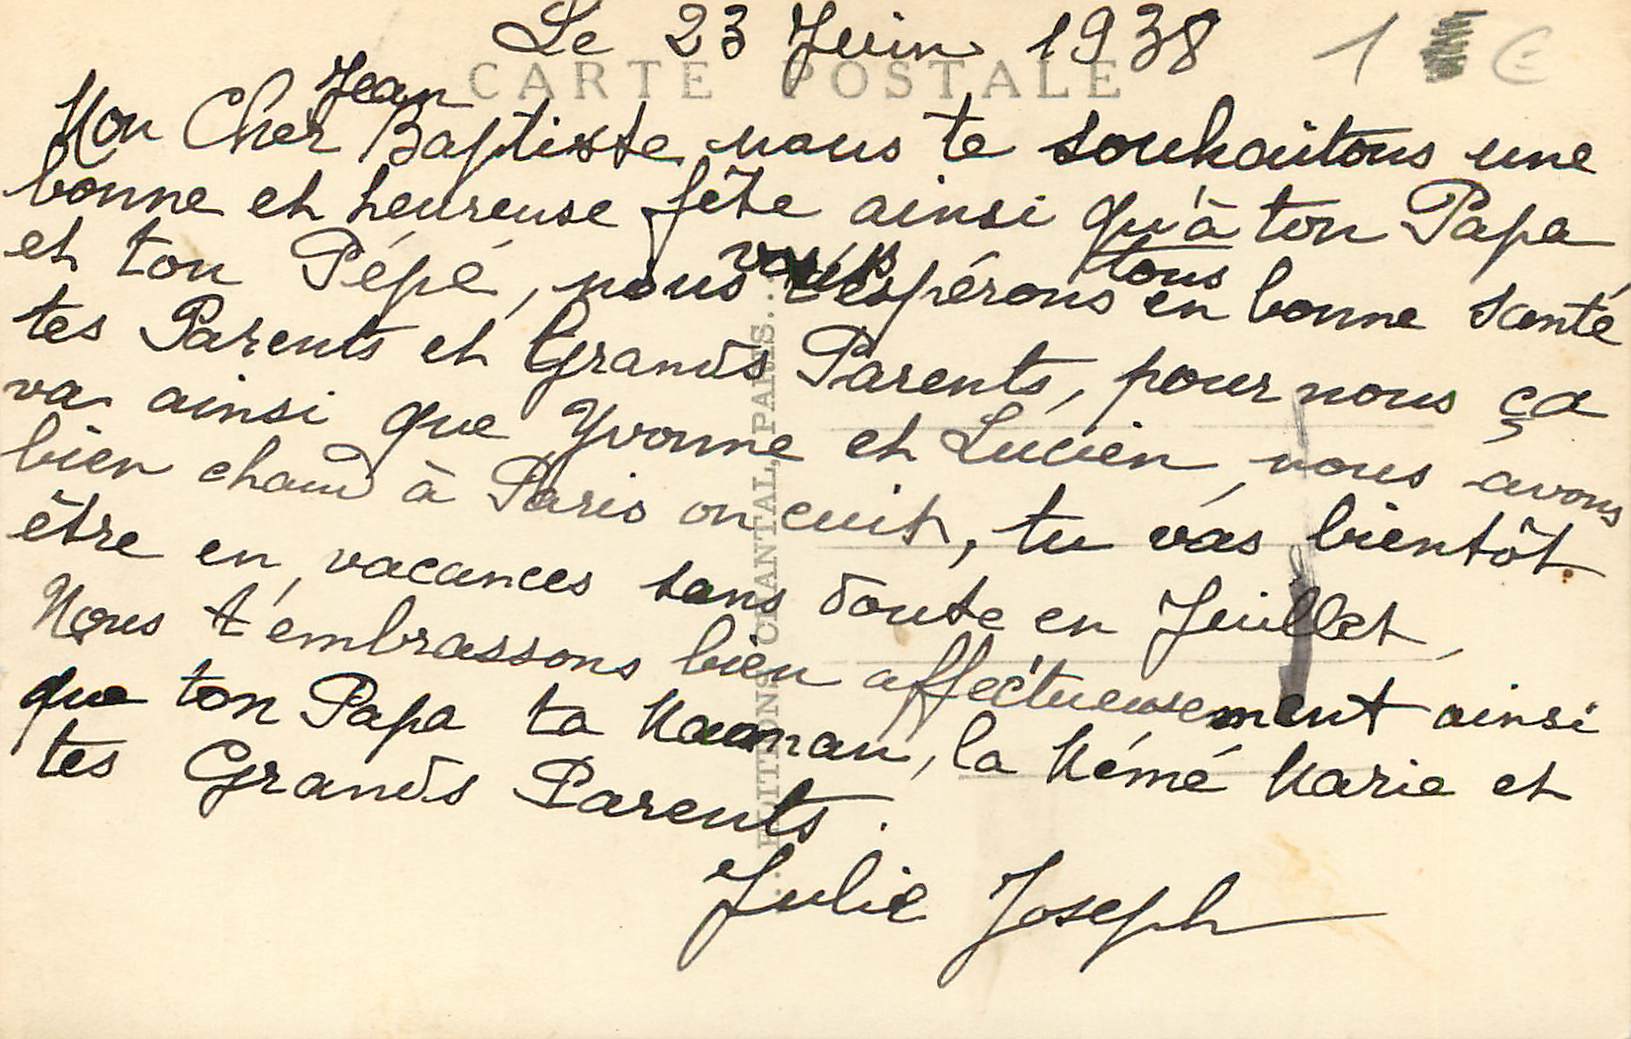 Le 23 Juin 1938
1 €
CARTE POSTALE
Jean
Mon Cher Baptiste nous te souhaitons une
bonne et heureuse fête ainsi qu'à ton Papa
et ton Pépé, nous vous espérons tous en bonne santé
tes Parents et Grands Parents, pour nous ça
va ainsi que Yvonne et Lucien, nous avons
bien chaud à Paris on cuit, tu vas bientôt
être en vacances sans doute en Juillet,
Nous t'embrassons bien affectueusement ainsi
que ton Papa ta Maman, la Mémé Marie et
tes Grands Parents.
Julie Joseph
EDITIONS CHANTAL, PARIS